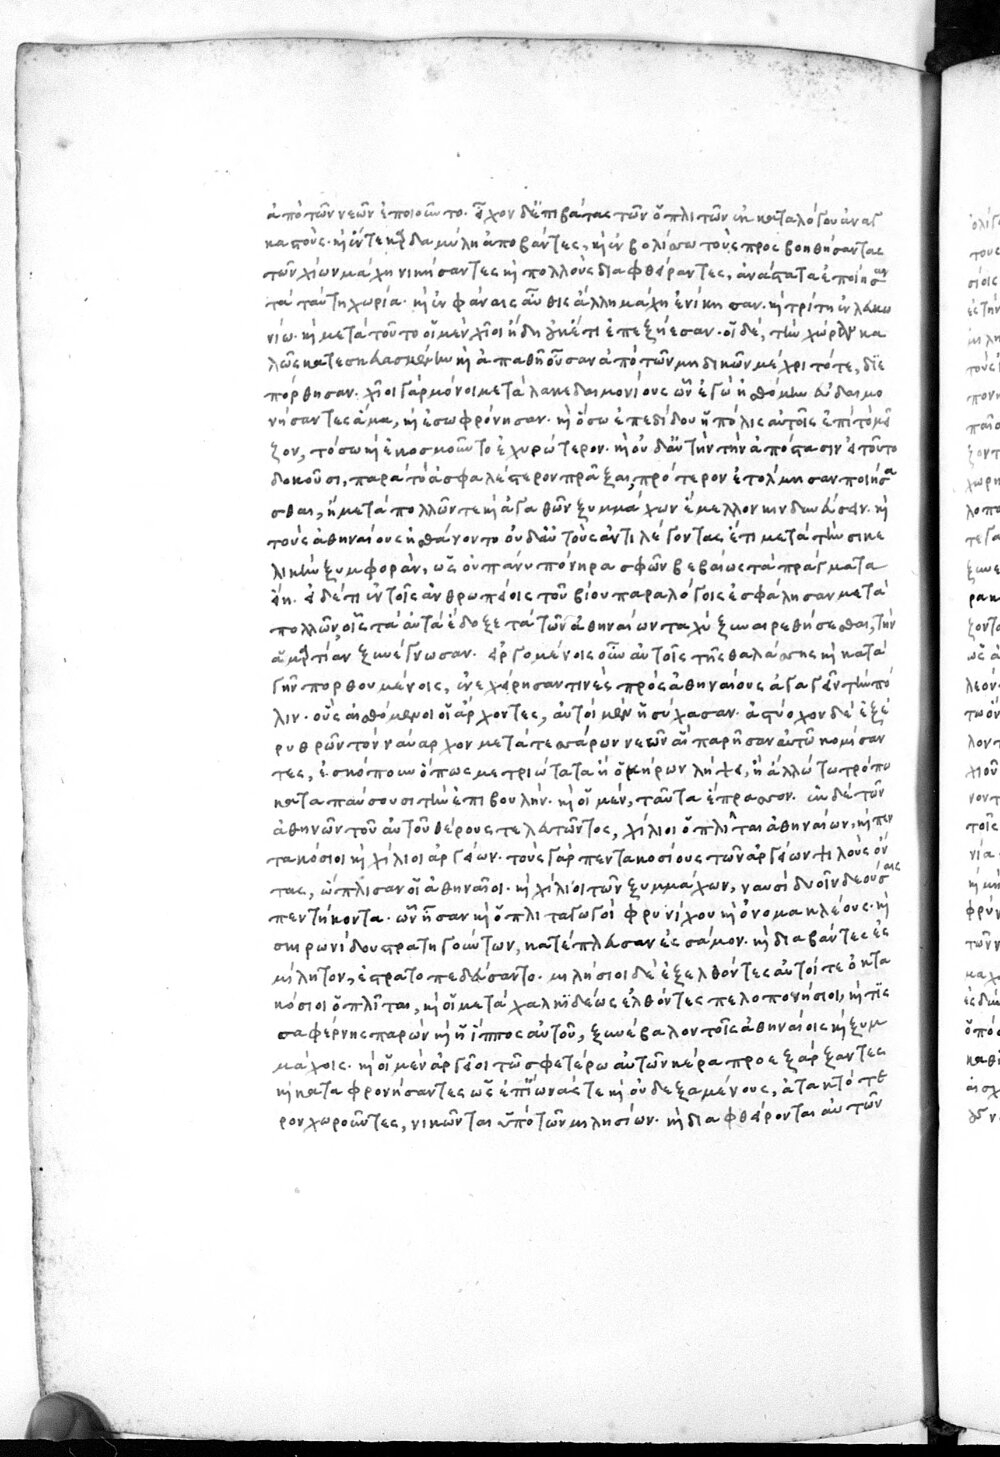 ἀπὸ τῶν νεῶν ἐποιοῦντο. εἶχον δ' ἐπιβάτας τῶν ὁπλιτῶν ἐκ καταλόγου ἀναγ
καστούς. καὶ ἔν τε καρδαμύλῃ ἀποβάντες, καὶ ἐν βολίσσῳ τοὺς προσβοηθήσαντας
τῶν χίων μάχῃ νικήσαντες καὶ πολλοὺς διαφθείραντες, ἀνάστατα ἐποίησαν
τὰ ταύτῃ χωρία. καὶ ἐν φάναις αὖθις ἄλλῃ μάχῃ ἐνίκησαν. καὶ τρίτῃ ἐν λευκω
νίῳ. καὶ μετὰ τοῦτο οἱ μὲν χῖοι ἤδη οὐκέτι ἐπεξῄεσαν. οἱ δὲ, τὴν χώραν κα
λῶς κατεσκευασμένην καὶ ἀπαθῆ οὖσαν ἀπὸ τῶν μηδικῶν μέχρι τότε, διε
πόρθησαν. χῖοι γὰρ μόνοι μετὰ λακεδαιμονίους ὧν ἐγὼ ᾐσθόμην εὐδαιμο
νήσαντες ἅμα, καὶ ἐσωφρόνησαν. καὶ ὅσῳ ἐπεδίδου ἡ πόλις αὐτοῖς ἐπὶ τὸ μεῖ
ζον, τόσῳ καὶ ἐκοσμοῦντο ἐχυρώτερον. καὶ οὐδ' αὐτὴν τὴν ἀπόστασιν εἰ τοῦτο
δοκοῦσι, παρὰ τὸ ἀσφαλέστερον πρᾶξαι, πρότερον ἐτόλμησαν ποιήσα
σθαι, ἢ μετὰ πολλῶν τε καὶ ἀγαθῶν ξυμμάχων ἔμελλον κινδυνεύσειν. καὶ
τοὺς ἀθηναίους ᾐσθάνοντο οὐδ' αὐτοὺς ἀντιλέγοντας ἔτι μετὰ τὴν σικε
λικὴν ξυμφορὰν, ὡς οὐ πάνυ πόνηρα σφῶν βεβαίως τὰ πράγματα
εἴη. εἰ δέ τι ἐν τοῖς ἀνθρωπείοις τοῦ βίου παραλόγοις ἐσφάλησαν μετὰ
πολλῶν, οἷς τὰ αὐτὰ ἔδοξε τὰ τῶν ἀθηναίων ταχὺ ξυναιρεθήσεσθαι, τὴν
ἁμαρτίαν ξυνέγνωσαν. εἰργομένοις οὖν αὐτοῖς τῆς θαλάσσης καὶ κατὰ
γῆν πορθουμένοις, ἐνεχείρησάν τινες πρὸς ἀθηναίους ἀγαγεῖν τὴν πό
λιν. οὓς αἰσθόμενοι οἱ ἄρχοντες, αὐτοὶ μὲν ἡσύχασαν. ἀστύοχον δὲ ἐξ ἐ
ρυθρῶν τὸν ναύαρχον μετὰ τεσσάρων νεῶν αἳ παρῆσαν αὐτῷ κομίσαν
τες, ἐσκόπουν ὅπως μετριώτατα ἢ ὁμήρων λήψει, ἢ ἄλλῳ τῳ τρόπῳ
καταπαύσουσι τὴν ἐπιβουλήν. καὶ οἱ μὲν, ταῦτα ἔπρασσον. ἐκ δὲ τῶν
ἀθηνῶν τοῦ αὐτοῦ θέρους τελευτῶντος, χίλιοι ὁπλῖται ἀθηναίων, καὶ πεν
τακόσιοι καὶ χίλιοι ἀργείων. τοὺς γὰρ πεντακοσίους τῶν ἀργείων ψιλοὺς ὄν
τας, ὥπλισαν οἱ ἀθηναῖοι. καὶ χίλιοι τῶν ξυμμάχων, ναυσὶ δυοῖν δεούσαις
πεντήκοντα. ὧν ἦσαν καὶ ὁπλιταγωγοὶ φρυνίχου καὶ ὀνομακλέους. καὶ
σκιρωνίδου στρατηγούντων, κατέπλευσαν ἐς σάμον. καὶ διαβάντες ἐς
μίλητον, ἐστρατοπεδεύσαντο. μιλήσιοι δὲ ἐξελθόντες αὐτοί τε ὀκτα
κόσιοι ὁπλῖται, καὶ οἱ μετὰ χαλκιδέως ἐλθόντες πελοποννήσιοι, καὶ τισ
σαφέρνης παρὼν καὶ ἡ ἵππος αὐτοῦ, ξυνέβαλον τοῖς ἀθηναίοις καὶ ξυμ
μάχοις. καὶ οἱ μὲν ἀργεῖοι τῷ σφετέρῳ αὐτῶν κέρᾳ προεξάρξαντες
καὶ καταφρονήσαντες ὡς ἐπ' ἴωνάς τε καὶ οὐ δεξαμένους, ἀτακτότε
ρον χωροῦντες, νικῶνται ὑπὸ τῶν μιλησίων. καὶ διαφθείρονται αὐτῶν